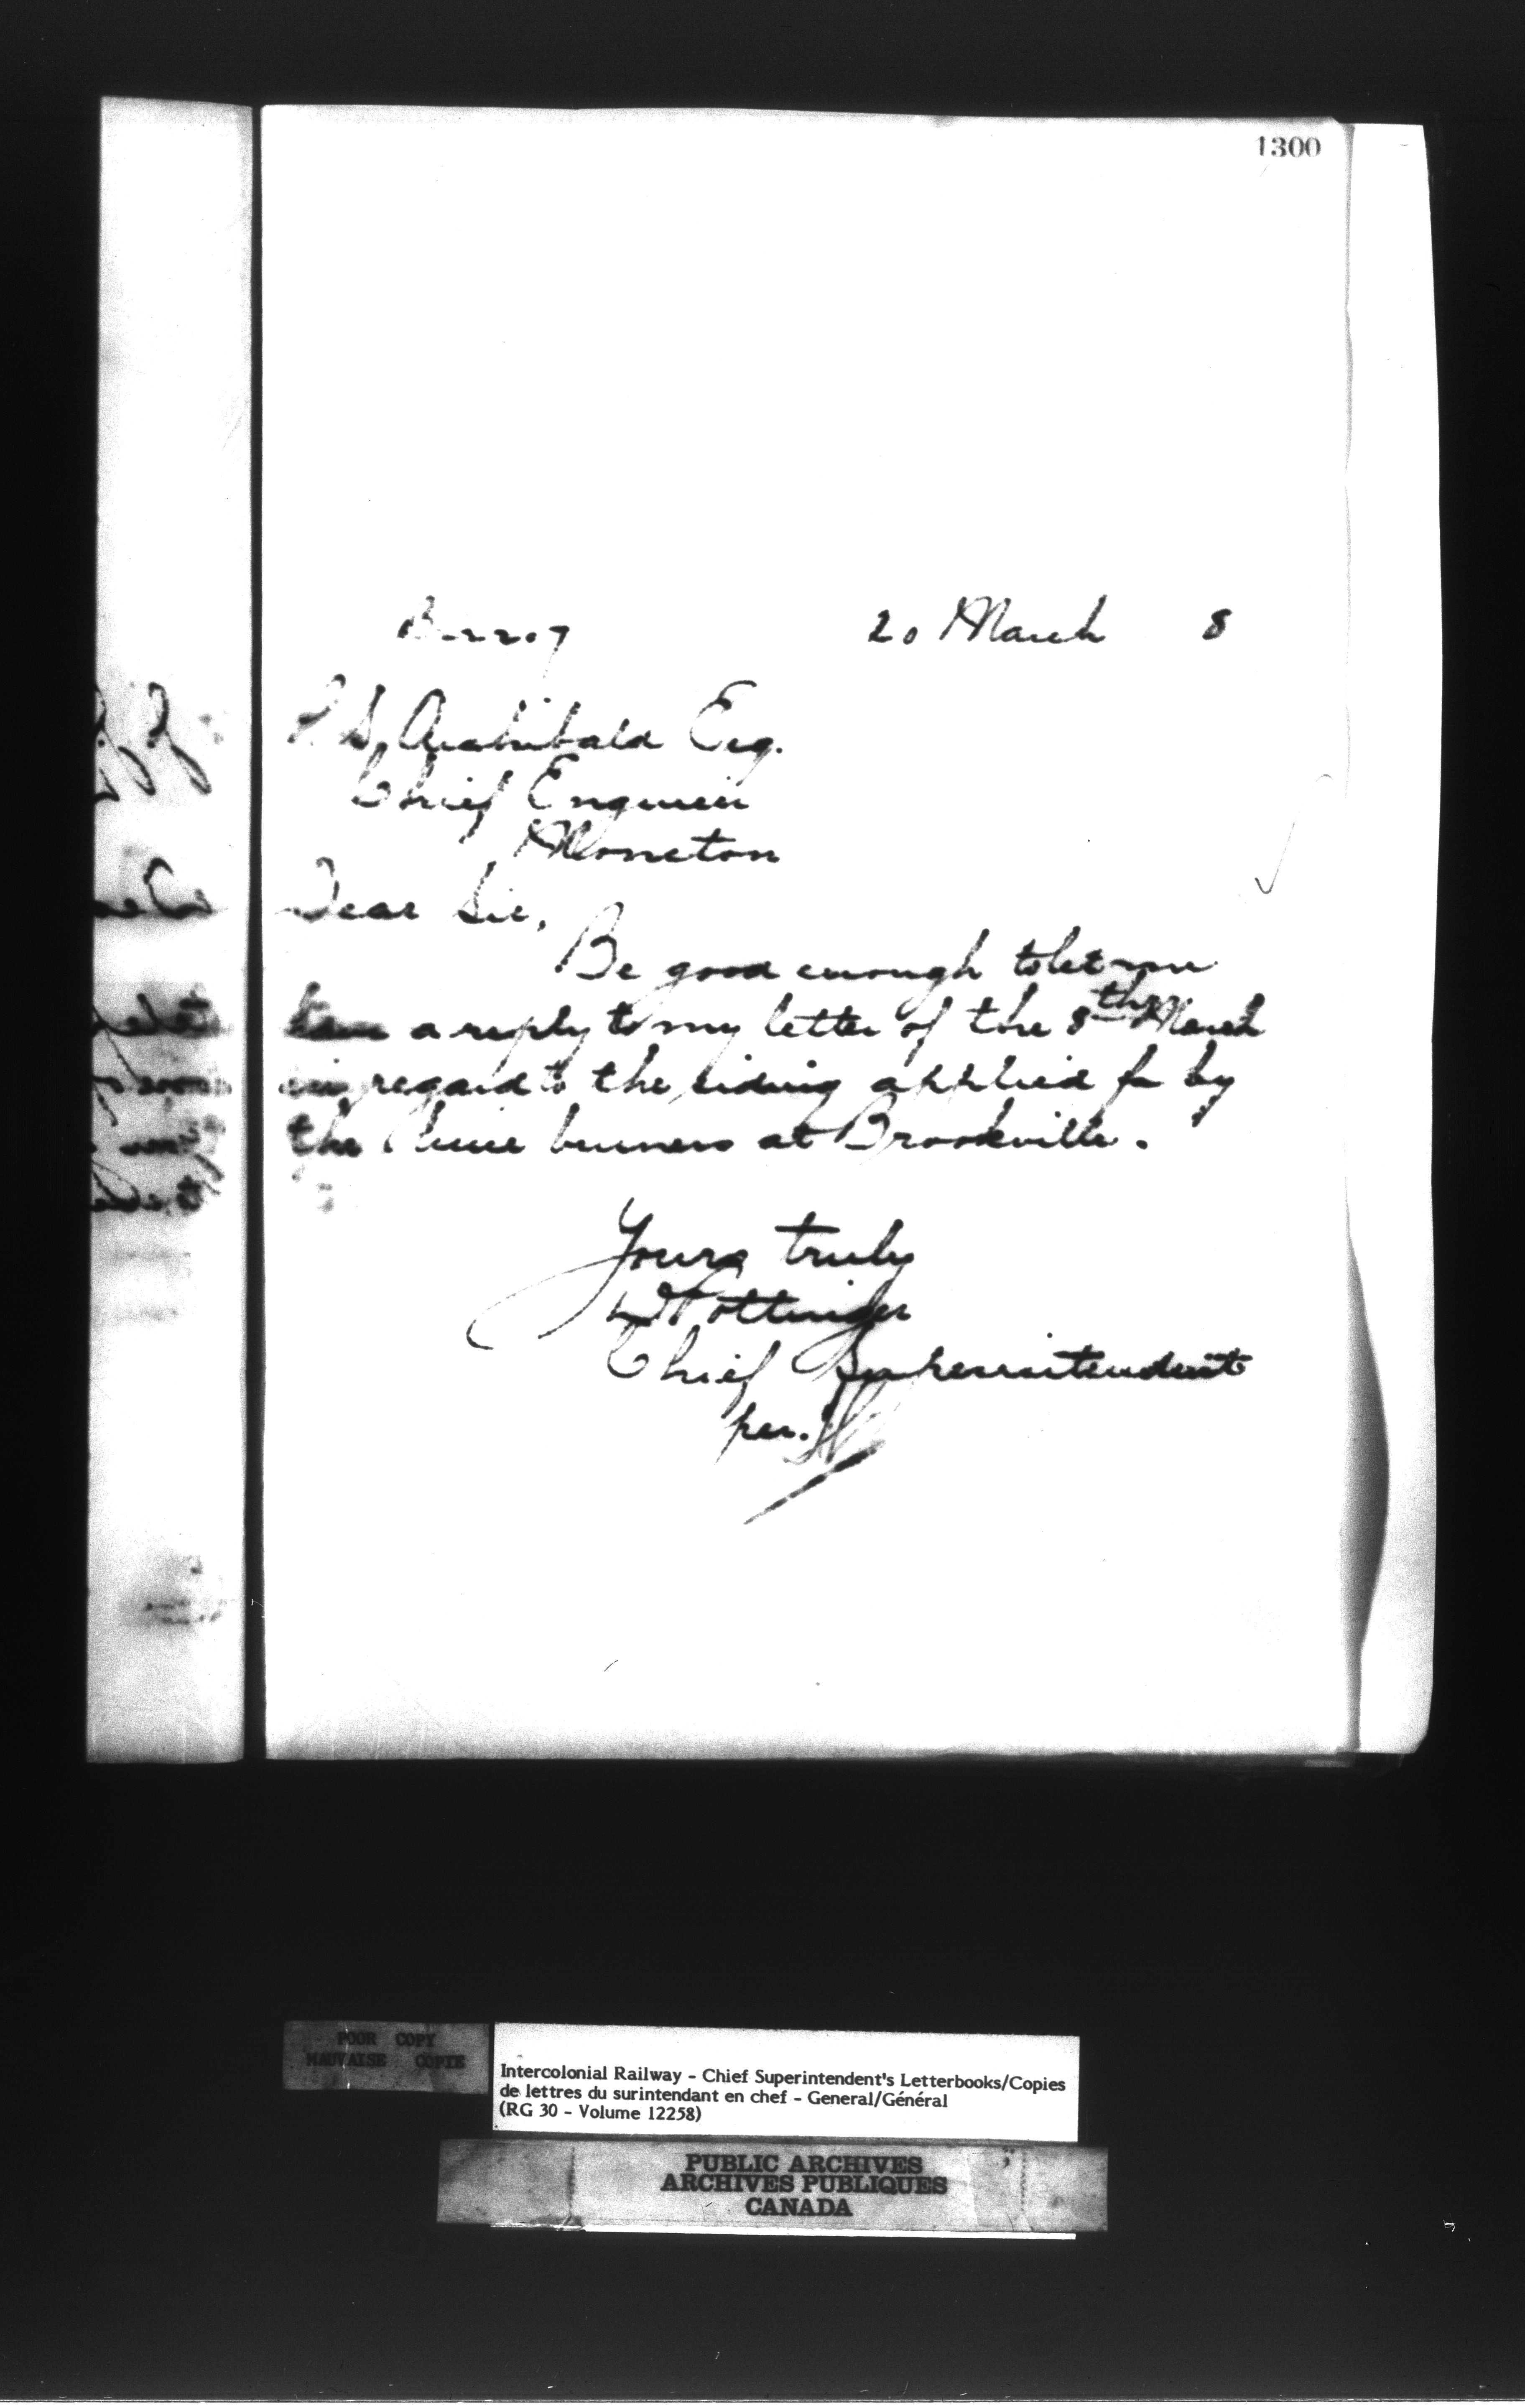 1300
20 March 8
P. S. Archibald Esq.
Chief Engineer
Moncton
Dear Sir,
Be good enough to let me
have a reply to my letter of the 8th March
in regard to the siding applied for by
the lime burners at Brookville.
Yours truly
D Pottinger
Chief Superintendent
per.
POOR COPY
MAUVAISE COPIE
Intercolonial Railway - Chief Superintendent's Letterbooks/Copies
de lettres du surintendant en chef - General/Général
(RG 30 - Volume 12258)
PUBLIC ARCHIVES
ARCHIVES PUBLIQUES
CANADA